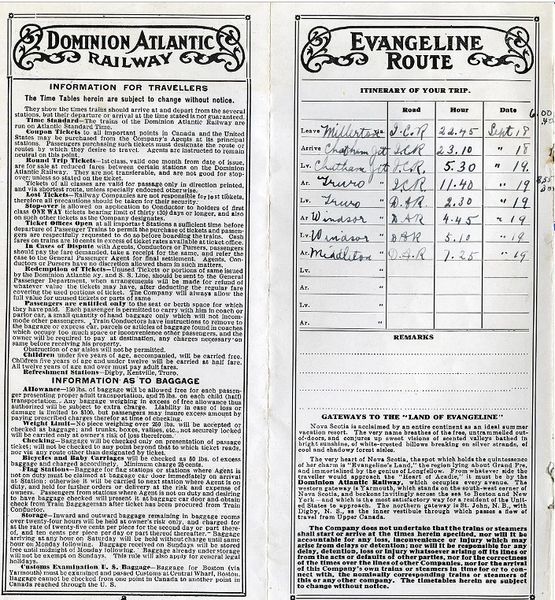 DOMINION ATLANTIC
RAILWAY
INFORMATION FOR TRAVELLERS
The Time Tables herein are subject to change without notice.
They show the times trains should arrive at and depart from the several
stations, but their departure or arrival at the time stated is not guaranteed.
Time Standard—The trains of the Dominion Atlantic Railway are
run on Atlantic Standard Time.
Coupon Tickets to all important points in Canada and the United
States may be purchased from the Company's Agents at its principal
stations. Passengers purchasing such tickets must designate the route or
routes by which they desire to travel. Agents are instructed to remain
neutral on this point.
Round Trip Tickets—1st class, valid one month from date of issue,
are for sale at reduced fares between certain stations on the Dominion
Atlantic Railway. They are not transferable, and are not good for stop-
over; unless so stated on the ticket.
Tickets of all classes are valid for passage only in direction printed,
and via shortest routes, unless specially endorsed otherwise.
Lost Tickets—Railway Companies are not responsible for lost tickets,
therefore all precautions should be taken for their security.
Stop-over is allowed on application to Conductor to holders of first
class ONE WAY tickets bearing limit of thirty (30) days or longer, and also
on such other tickets as the Company designates.
Ticket Offices open at all important Stations a sufficient time before
departure of Passenger Trains to permit the purchase of tickets and passen-
gers are respectfully requested to do so before boarding the trains. Cash
fares on trains are 10 cents in excess of ticket rates available at ticket office.
In Case of Dispute with Agents, Conductors or Pursers, passengers
should pay the fare demanded, take a receipt for the same, and refer the
case to the General Passenger Agent for final settlement. Agents, Con-
ductors or Pursers have no discretion allowed them in such matters.
Redemption of Tickets—Unused Tickets or portions of same issued
by the Dominion Atlantic Ry. and S. S. Line, should be sent to the General
Passenger Department, when arrangements will be made for refund of
whatever value the tickets may have, after deducting the regular fare
covering the used portions of ticket. The Company will always allow the
full value for unused tickets or parts of same
Passengers are entitled only to the seat or berth space for which
they have paid. Each passenger is permitted to carry with him in coach or
parlor car, a small quantity of hand baggage only which will not incom-
mode other passengers. Train Conductors have instructions to remove to
the baggage or express car, parcels or articles of baggage found in coaches
which occupy too much space or inconvenience other passengers, and the
owner will be required to pay at destination, any charges necessary on
same before receiving his property.
Obstruction of car aisles will not be permitted.
Children under five years of age, accompanied, will be carried free.
Children five years of age and under twelve will be carried at half fare.
All twelve years of age and over must pay adult fares.
Refreshment Stations—Digby, Kentville, Truro.
INFORMATION AS TO BAGGAGE
Allowance—150 lbs. of baggage will be allowed free for each passen-
ger presenting proper adult transportation, and 75 lbs. on each child (half)
transportation. Any baggage weighing in excess of free allowance thus
authorized will be subject to extra charge. Liability in case of loss or
damage is limited to $100, but passengers may insure excess amount by
paying proper charges therefor at time of checking.
Weight Limit—No piece weighing over 250 lbs. will be accepted or
checked as baggage; and trunks, boxes, valises, etc., not securely locked
will be carried only at owner's risk of loss therefrom.
Checking—Baggage will be checked only on presentation of passage
ticket; will not be checked to any point beyond that to which ticket reads,
nor via any route other than designated by ticket.
Bicycles and Baby Carriages will be checked as 50 lbs. of excess
baggage and charged accordingly. Minimum charge 25 cents.
Flag Stations—Baggage for flag stations or stations where Agent is
not on duty must be claimed at baggage car door immediately on arrival
at Station; otherwise it will be carried to next station where Agent is on
duty, and held for further orders or delivery at the risk and expense of
owners. Passengers from stations where Agent is not on duty and desiring
to have baggage checked will present it at baggage car door and obtain
check from Train Baggageman after ticket has been procured from Train
Conductor.
Storage—Inward and outward baggage remaining in baggage rooms
over twenty-four hours will be held at owner's risk only, and charged for
at the rate of twenty-five cents per piece for the second day or part there-
of, and ten cents per piece per day or part thereof thereafter. Baggage
arriving at any hour on Saturday will be held without charge until same
hour Monday following; baggage received on Sundays will be stored
free until midnight of Monday following. Baggage already under storage
will not be exempt on Sundays. This rule will also apply for general legal
holidays.
Customs Examination U. S. Baggage—Baggage for Boston (via
Yarmouth must be examined and passed Customs at Central Wharf, Boston.
Baggage cannot be checked from one point in Canada to another point in
Canada reached through the U. S.
EVANGELINE
ROUTE
ITINERARY OF YOUR TRIP.
Road Hour Date
Leave Millerton I.C.R 22.45 Sept 18
Arrive Chatham Jct I.C.R 23.10 " 18
Lv. Chatham Jct I.C.R. 5.30 " 19.
Ar. Truro I.C.R 11.40 " 19
Lv. Truro D.A.R 2.30 " 19
Ar Windsor D.A.R 4.45 " 19
Lv Windsor D.A.R 5.10 " 19
Ar. Middleton D.A.R 7.25 " 19
Lv. "
Ar. "
Lv. "
Ar. "
6.00
REMARKS
GATEWAYS TO THE "LAND OF EVANGELINE"
Nova Scotia is acclaimed by an entire continent as an ideal summer
vacation resort. The very name breathes of the free, untrammelled out-
of-doors, and conjures up sweet visions of scented valleys bathed in
bright sunshine, of white-crested billows breaking on silver strands, of
cool and shadowy forest aisles.
The very heart of Nova Scotia, the spot which holds the quintessence
of her charm is "Evangeline's Land," the region lying about Grand Pre,
and immortalized by the genius of Longfellow. From whatever side the
traveller would approach the "Heart of Acadie", it must be by the
Dominion Atlantic Railway, which occupies every avenue. The
western gateway is Yarmouth, Nova Scotia, set on the south-west corner of
Nova Scotia, and beckoning invitingly across the sea to Boston and New
York—and which is the most satisfactory way for a resident of the Unit-
ed States to approach. The northern gateway is St. John, N. B., with
Digby, N. S., as the inner vestibule through which passes a flow of
travel from Upper Canada.
The Company does not undertake that the trains or steamers
shall start or arrive at the times herein specified, nor will it be
accountable for any loss, inconvenience or injury which may
arise from delays or detention; nor will it be responsible for any
delay, detention, loss or injury whatsoever arising off its lines or
from the acts or defaults of other parties, nor for the correctness
of the times over the lines of other Companies, nor for the arrival
of this Company's own trains or steamers in time for or to con-
nect with, the nominally corresponding trains or steamers of
this or any other company. The timetables herein are subject
to change without notice.